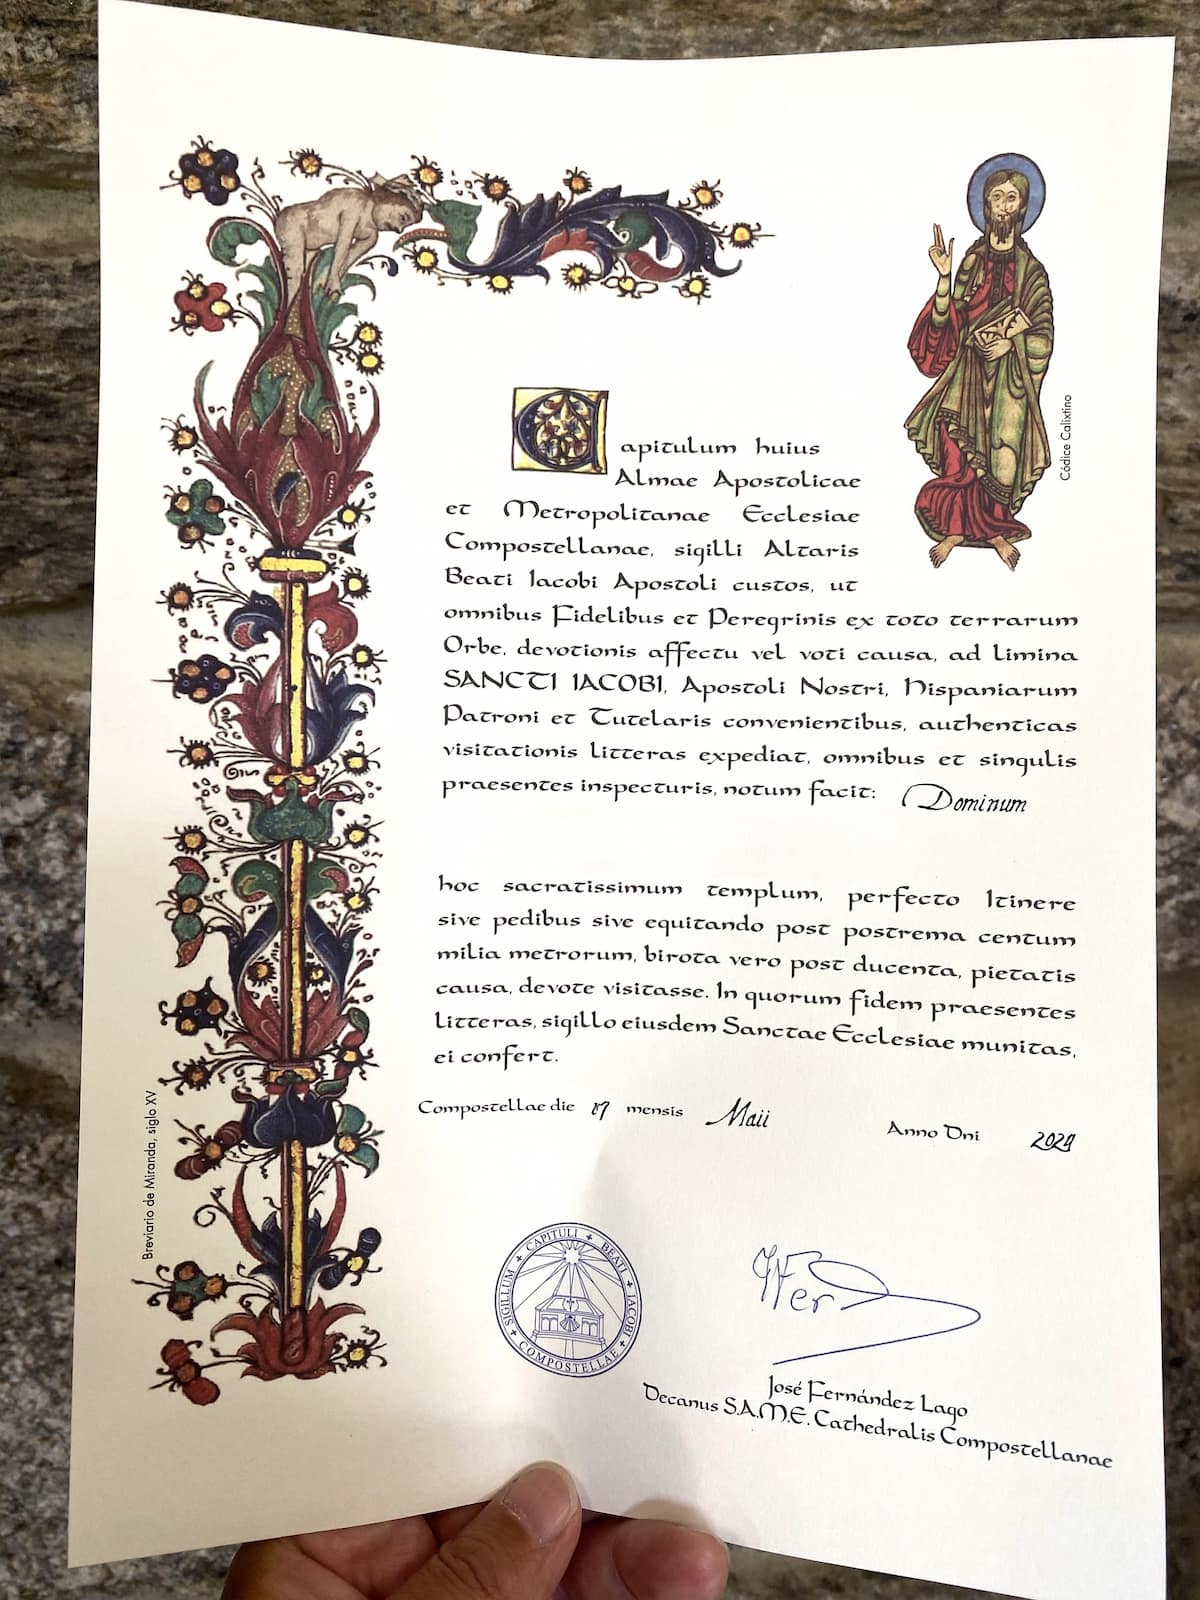 Capitulum huius
Almae Apostolicae
et Metropolitanae Ecclesiae
Compostellanae, sigilli Altaris
Beati Iacobi Apostoli custos, ut
omnibus Fidelibus et Peregrinis ex toto terrarum
Orbe, devotionis affectu vel voti causa, ad limina
SANCTI IACOBI, Apostoli Nostri, Hispaniarum
Patroni et Tutelaris convenientibus, authenticas
visitationis litteras expediat, omnibus et singulis
praesentes inspecturis, notum facit: Dominum
hoc sacratissimum templum, perfecto Itinere
sive pedibus sive equitando post postrema centum
milia metrorum, birota vero post ducenta, pietatis
causa, devote visitasse. In quorum fidem praesentes
litteras, sigillo eiusdem Sanctae Ecclesiae munitas,
ei confert.
Compostellae die 17 mensis Maii Anno Dni 2024
SIGILLUM + CAPITULI + BEATI + IACOBI + COMPOSTELLAE +
José Fernández Lago
Decanus S.A.M.E. Cathedralis Compostellanae
Códice Calixtino
Breviario de Miranda, siglo XV